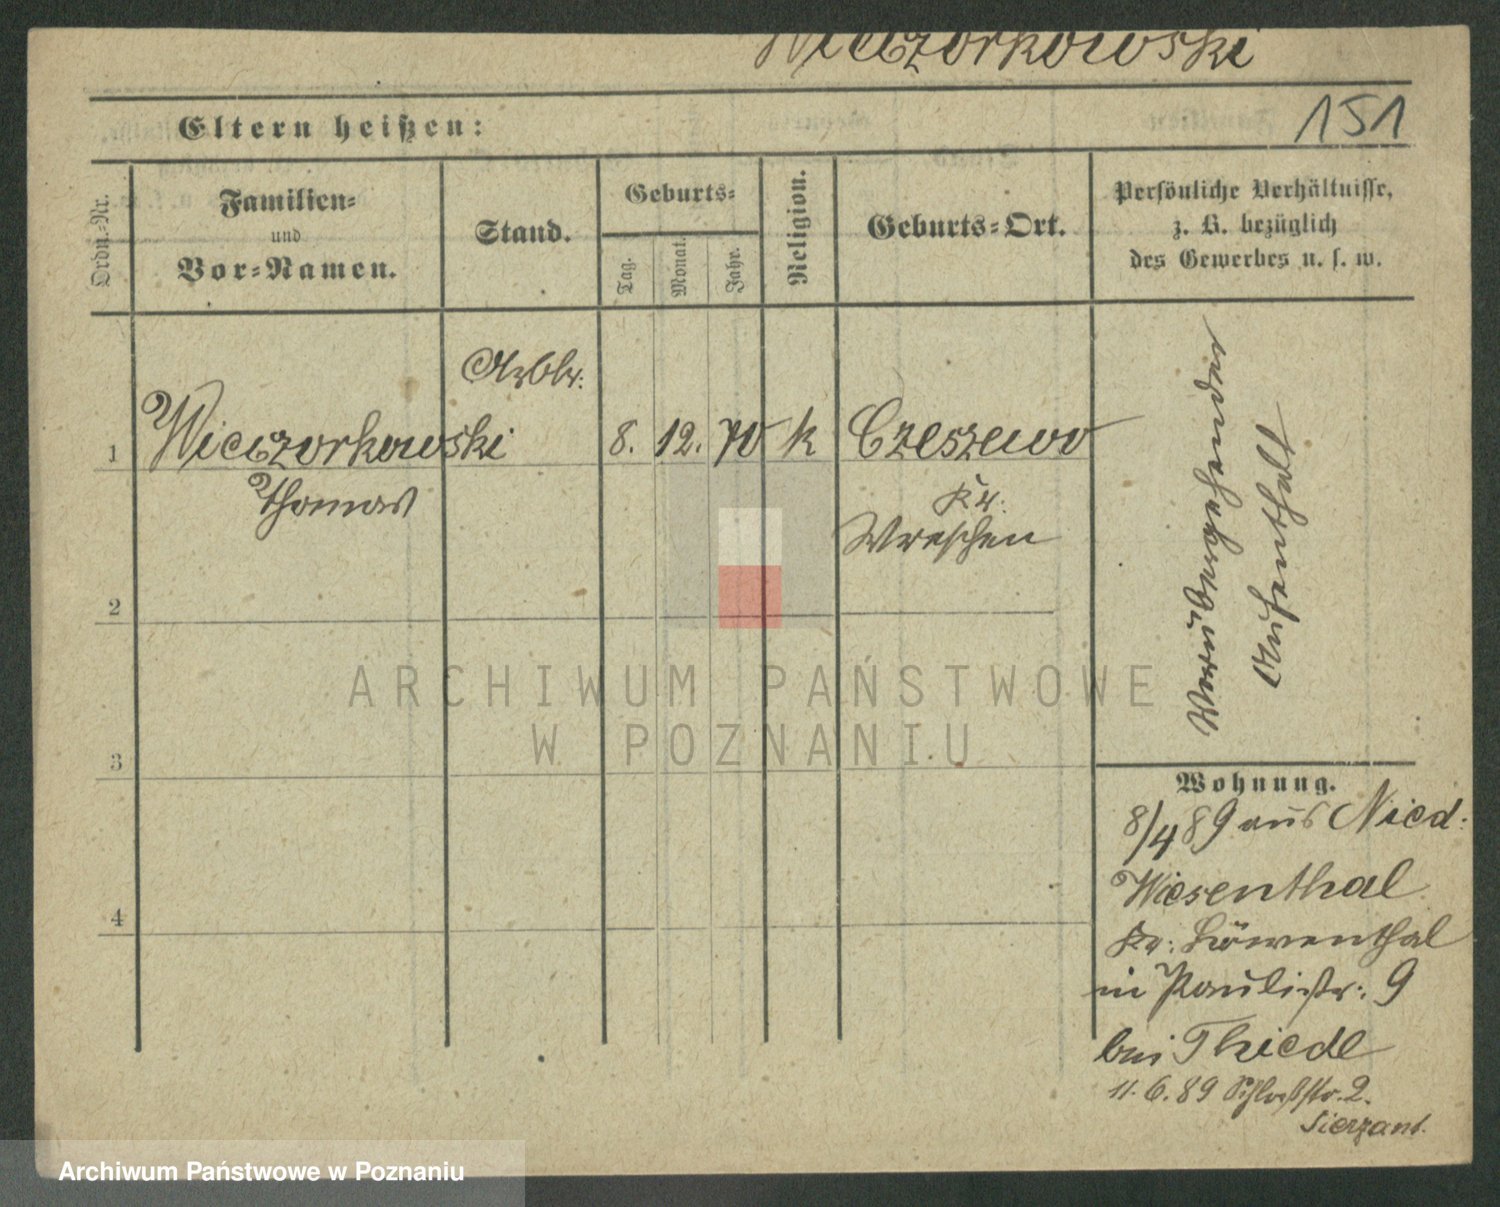 Wieczorkowski
Eltern heißen:
151
Ordn.-Nr.
Familien-
und
Vor-Namen.
Stand.
Geburts-
Tag.
Monat.
Jahr.
Religion.
Geburts-Ort.
Persönliche Verhältnisse,
z. B. bezüglich
des Gewerbes u. s. w.
Arbtr.
1 Wieczorkowski 8. 12. 70 k Czeszewo
Thomas
Kr:
Wreschen
Vorübergehender
Aufenthalt
2
3
4
Wohnung.
8/4 89 aus Nied:
Wiesenthal
Kr: Löwenthal
in Paulistr: 9
bei Thiedl
11. 6. 89 Schloßstr. 2.
Sierzant.
ARCHIWUM PAŃSTWOWE
W POZNANIU
Archiwum Państwowe w Poznaniu